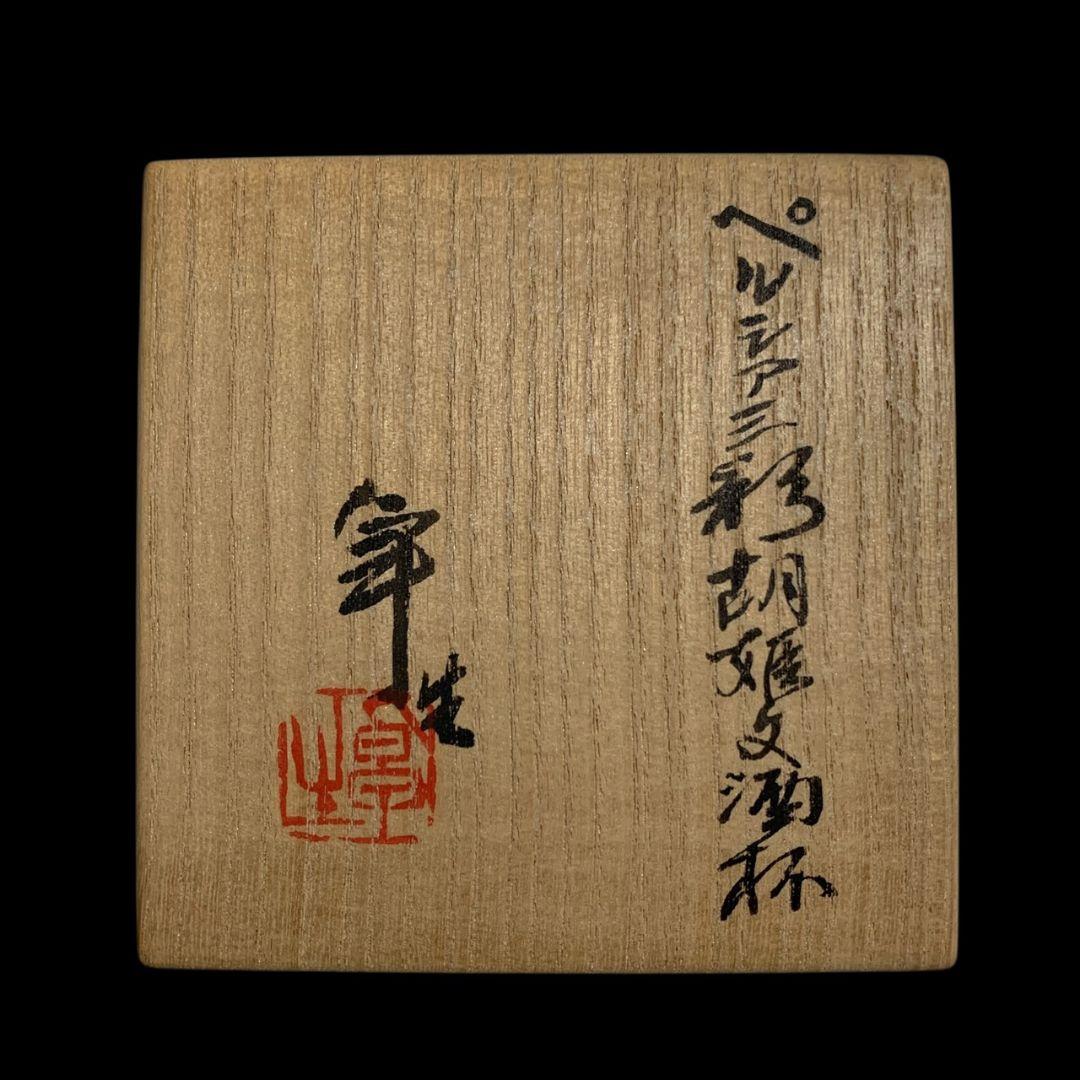 ペルシア三彩胡姫文酒杯